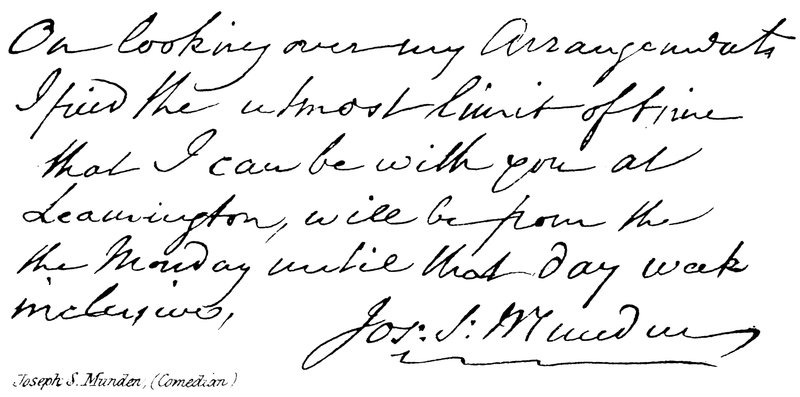 On looking over my Arrangements
I find the utmost limit of time
that I can be with you at
Leamington, will be from the
the Monday until that day week
inclusive,
Jos: S: Munden
Joseph S. Munden, (Comedian)